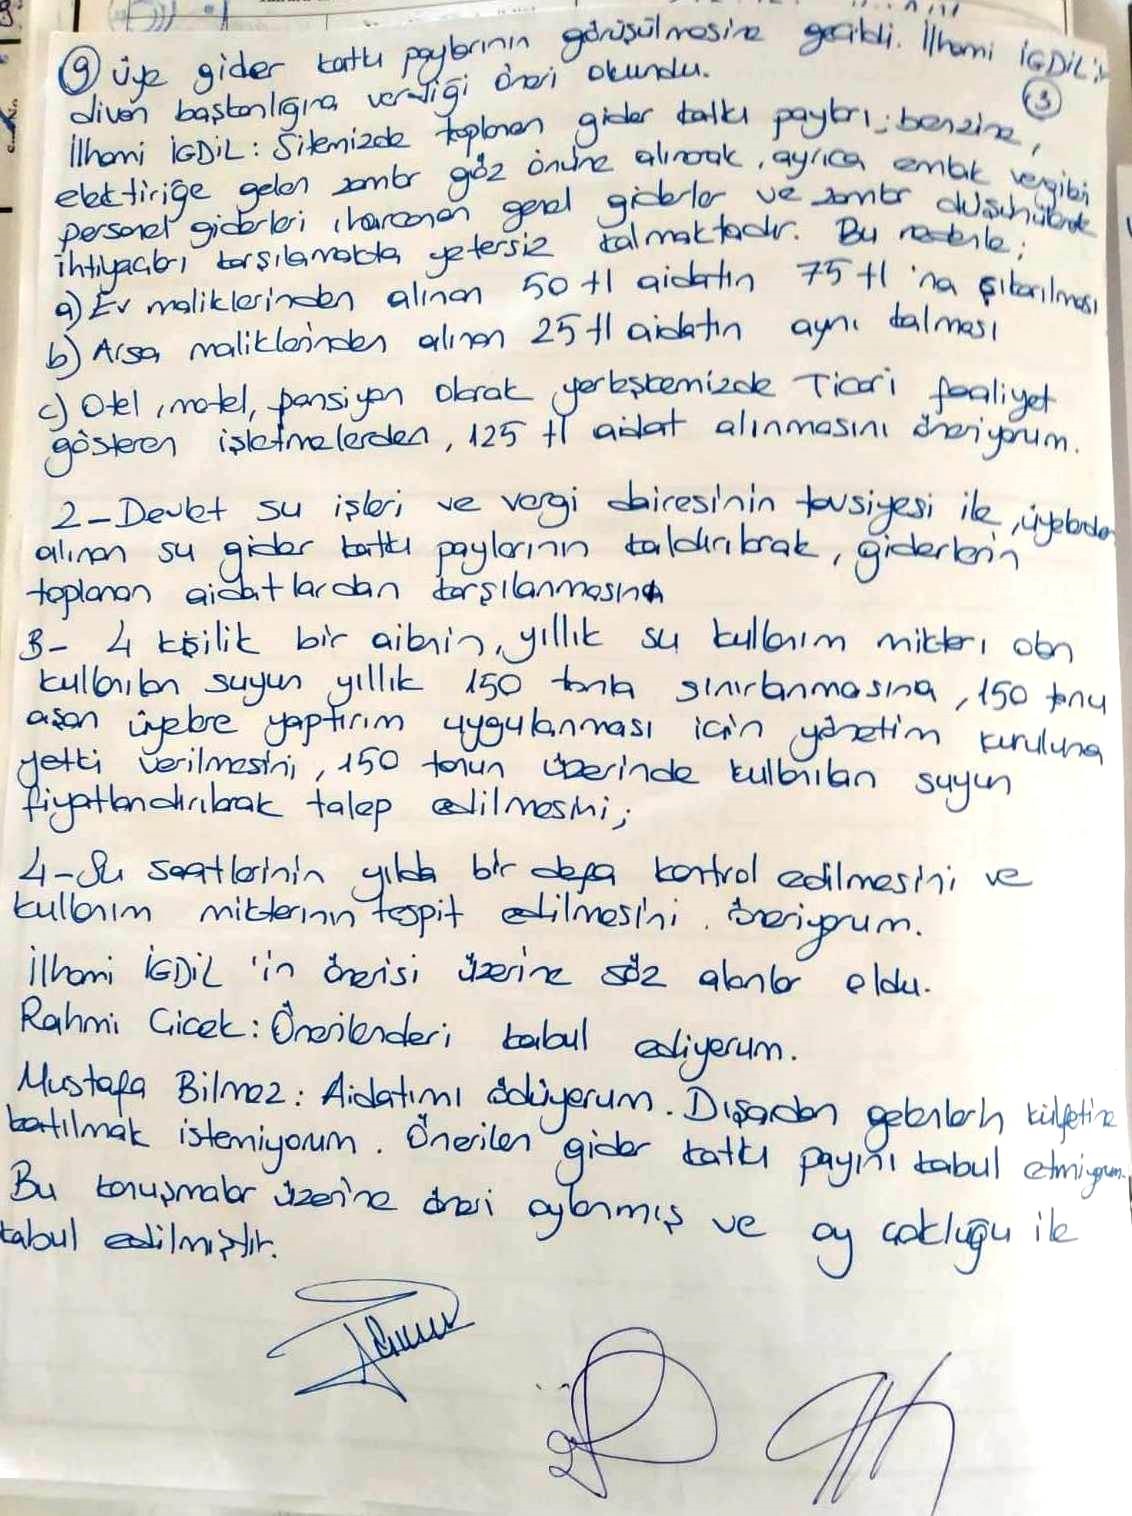 9 üye gider katkı paylarının görüşülmesine geçildi. İlhami İGDİL'in
divan başkanlığına verdiği öneri okundu.
3
İlhami İGDİL: Sitemizde toplanan gider katkı payları; benzine,
elektiriğe gelen zamlar göz önüne alınarak, ayrıca emlak vergileri
personel giderleri, harcanan genel giderler ve zamlar düşünülerek
ihtiyaçları karşılamakta yetersiz kalmaktadır. Bu nedenle;
a) Ev maliklerinden alınan 50 tl aidatın 75 tl 'na çıkarılması
b) Arsa maliklerinden alınan 25 tl aidatın aynı kalması
c) Otel, motel, pansiyon olarak yerleşkemizde Ticari faaliyet
gösteren işletmelerden, 125 tl aidat alınmasını öneriyorum.
2- Devlet su işleri ve vergi dairesi'nin tavsiyesi ile, üyelerden
alınan su gider katkı paylarının kaldırılarak, giderlerin
toplanan aidatlardan karşılanmasına
3- 4 kişilik bir ailenin, yıllık su kullanım miktarı olan
kullanılan suyun yıllık 150 tonla sınırlanmasına, 150 tonu
aşan üyelere yaptırım uygulanması için yönetim kuruluna
yetki verilmesini, 150 tonun üzerinde kullanılan suyun
fiyatlandırılarak talep edilmesini;
4- Su saatlerinin yılda bir defa kontrol edilmesini ve
kullanım miktarının tespit edilmesini. öneriyorum.
İlhami İGDİL 'in önerisi üzerine söz alanlar oldu.
Rahmi Cicek: Önerilenderi kabul ediyerum.
Mustafa Bilmez: Aidatımı ödüyerum. Dışardan gelenlerin külfetine
katılmak istemiyorum. Önerilen gider katkı payını kabul etmiyorum.
Bu konuşmalar üzerine öneri oylanmış ve oy çokluğu ile
kabul edilmiştir.